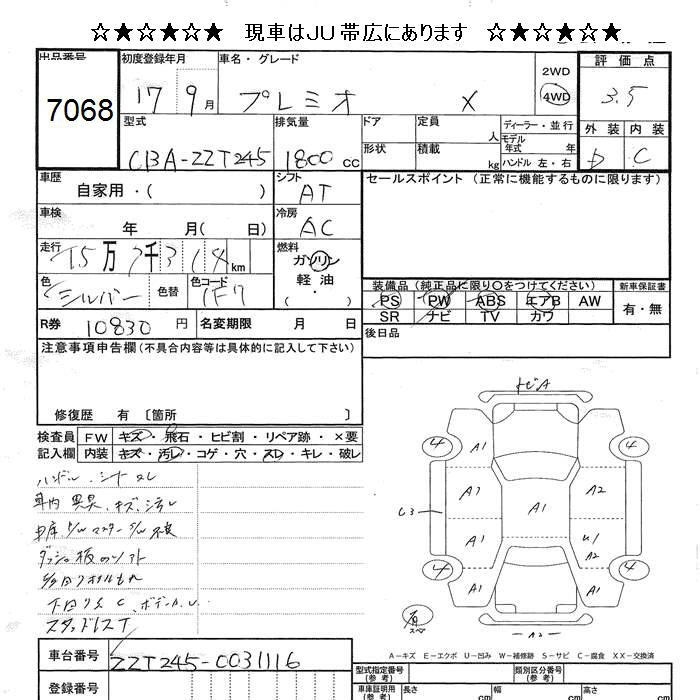 ☆★☆★☆★ 現車はJU帯広にあります ☆★☆★☆★
出品番号 初度登録年月 車名・グレード 評価点
7068 17 9月 プレミオ X 2WD 4WD 3.5
型式 排気量 ドア 定員 人 ディーラー・並行 外装 内装
CBA-ZZT245 1800cc 形状 積載 kg モデル年式 年 ハンドル 左・右 D C
車歴 シフト セールスポイント(正常に機能するものに限ります)
自家用・( ) AT
車検 冷房
年 月(日) AC
走行 燃料
15万7千314km ガソリン
色 色替 色コード 軽油 装備品(純正品に限り○をつけてください) 新車保証書
シルバー 1F7 ( ・ ) PS PW ABS エアB AW 有・無
R券 10830円 名変期限 月 日 SR ナビ TV カワ
注意事項申告欄(不具合内容等は具体的に記入して下さい) 後日品
修復歴 有〔箇所 〕
トビA
検査員 FW キズ・飛石・ヒビ割・リペア跡・×要
記入欄 内装 キズ・汚レ・コゲ・穴・スレ・キレ・破レ
ハンドル、シートスレ
車内 異臭、キズ、汚レ
スタッドレスT
4 A1 4
A1 A1 A2
C3
A1 U1 A2
4 A1 A1 4
A2
A-キズ E-エクボ U-凹み W-補修跡 S-サビ C-腐食 XX-交換済
車台番号 ZZT245-0031116
型式指定番号(参考) 類別区分番号(参考)
登録番号 車庫証明用(参考) 長さ cm 幅 cm 高さ cm